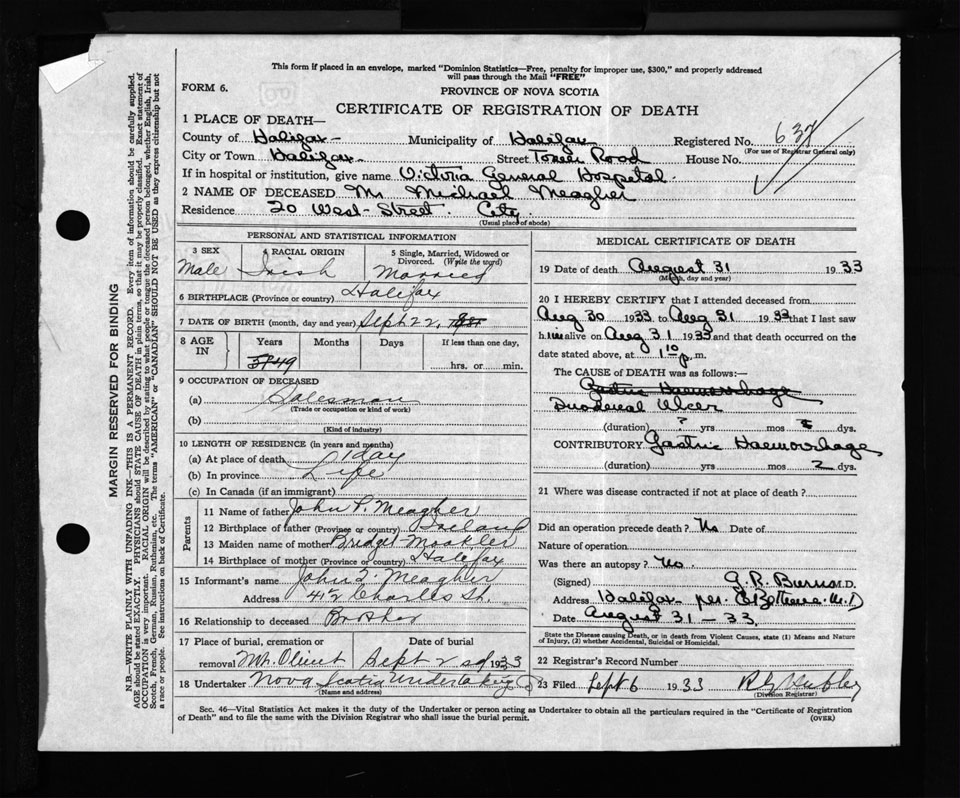 This form if placed in an envelope, marked "Dominion Statistics—Free, penalty for improper use, $300," and properly addressed
will pass through the Mail "FREE"
FORM 6.
PROVINCE OF NOVA SCOTIA
CERTIFICATE OF REGISTRATION OF DEATH
1 PLACE OF DEATH—
County of Halifax Municipality of Halifax Registered No. 637
(For use of Registrar General only)
City or Town Halifax Street Tower Road House No.
If in hospital or institution, give name Victoria General Hospital
2 NAME OF DECEASED Mr Michael Meagher
Residence 20 West Street. City
(Usual place of abode)
PERSONAL AND STATISTICAL INFORMATION
3 SEX 4 RACIAL ORIGIN 5 Single, Married, Widowed or Divorced. (Write the word)
Male Irish Married
6 BIRTHPLACE (Province or country) Halifax
7 DATE OF BIRTH (month, day and year) Sept 22,
8 AGE IN Years Months Days If less than one day,
49 hrs. or min.
9 OCCUPATION OF DECEASED
(a) Salesman
(Trade or occupation or kind of work)
(b)
(Kind of industry)
10 LENGTH OF RESIDENCE (in years and months)
(a) At place of death 1 day
(b) In province Life
(c) In Canada (if an immigrant)
Parents
11 Name of father John P. Meagher
12 Birthplace of father (Province or country) Ireland
13 Maiden name of mother Bridget Mockler
14 Birthplace of mother (Province or country) Halifax
15 Informant's name John F. Meagher
Address 41½ Charles St.
16 Relationship to deceased Brother
17 Place of burial, cremation or Date of burial
removal Mt. Olivet Sept 2nd 1933
18 Undertaker Nova Scotia Undertaking Co
(Name and address)
MEDICAL CERTIFICATE OF DEATH
19 Date of death August 31 1933
(Month, day and year)
20 I HEREBY CERTIFY that I attended deceased from
Aug 30 1933 to Aug 31 1933 that I last saw
him alive on Aug 31 1933 and that death occurred on the
date stated above, at 1 10 p. m.
The CAUSE OF DEATH was as follows:
Gastric Haemorrhage
Duodenal Ulcer
(duration) ? yrs mos dys.
CONTRIBUTORY Gastric Haemorrhage
(duration) yrs mos 2 dys.
21 Where was disease contracted if not at place of death?
Did an operation precede death? No Date of
Nature of operation
Was there an autopsy? No.
(Signed) G. R. Burns M.D.
Address Halifax per. M.D
Date August 31 - 33.
State the Disease causing Death, or in death from Violent Causes, state (1) Means and Nature
of Injury, (2) whether Accidental, Suicidal or Homicidal.
22 Registrar's Record Number
23 Filed Sept 6 1933
(Division Registrar)
Sec. 46—Vital Statistics Act makes it the duty of the Undertaker or person acting as Undertaker to obtain all the particulars required in the "Certificate of Registration
of Death" and to file the same with the Division Registrar who shall issue the burial permit.
(OVER)
MARGIN RESERVED FOR BINDING
N.B.—WRITE PLAINLY WITH UNFADING INK—THIS IS A PERMANENT RECORD. Every item of information should be carefully supplied.
AGE should be stated EXACTLY. PHYSICIANS should state CAUSE OF DEATH in plain terms, so that it may be properly classified. Exact statement of
OCCUPATION is very important. RACIAL ORIGIN will be described by stating to what people or tongue the deceased person belonged, whether English, Irish,
Scotch, French, German, Russian, Ruthenian, etc. The terms "AMERICAN" or "CANADIAN" SHOULD NOT BE USED as they express citizenship but not
a race or people. See instructions on back of Certificate.